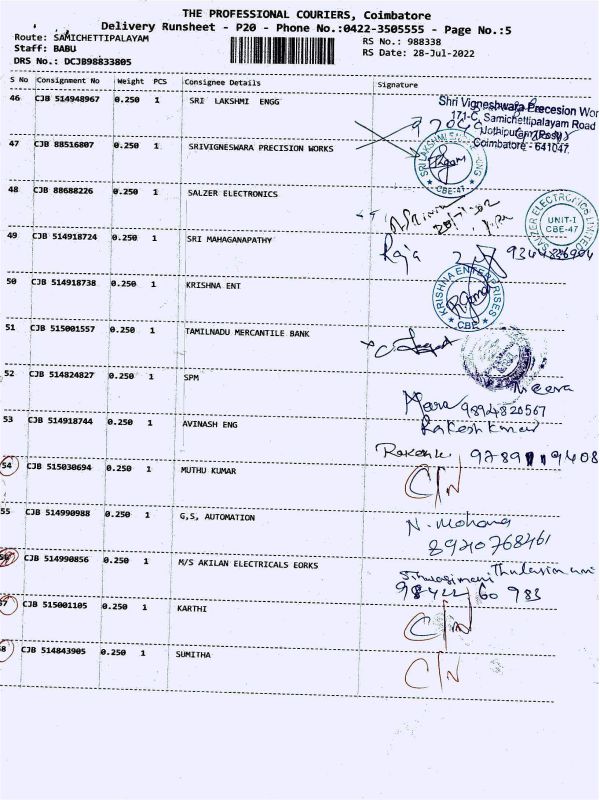 THE PROFESSIONAL COURIERS, Coimbatore
Delivery Runsheet - P20 - Phone No.:0422-3505555 - Page No.:5
Route: SAMICHETTIPALAYAM
Staff: BABU
DRS No.: DCJB98833805
RS No.: 988338
RS Date: 28-Jul-2022
S No Consignment No Weight PCS Consignee Details Signature
46 CJB 514948967 0.250 1 SRI LAKSHMI ENGG
Shri Vigneshwara Precesion Wor
171-C, Samichettipalayam Road
Jothipuram (Post)
Coimbatore - 641047.
47 CJB 88516807 0.250 1 SRIVIGNESWARA PRECISION WORKS
SRI LAKSHMI
CBE-47
48 CJB 88688226 0.250 1 SALZER ELECTRONICS
SALZER ELECTRONICS LIMITED
UNIT-I
CBE-47
49 CJB 514918724 0.250 1 SRI MAHAGANAPATHY
Raja
50 CJB 514918738 0.250 1 KRISHNA ENT
KRISHNA ENTERPRISES
CBE
51 CJB 515001557 0.250 1 TAMILNADU MERCANTILE BANK
52 CJB 514824827 0.250 1 SPM
Meera
9894820567
53 CJB 514918744 0.250 1 AVINASH ENG
Rakesh Kumar
54 CJB 515030694 0.250 1 MUTHU KUMAR
C/N
55 CJB 514990988 0.250 1 G,S, AUTOMATION
N. Mohana
8940768461
56 CJB 514990856 0.250 1 M/S AKILAN ELECTRICALS EORKS
57 CJB 515001105 0.250 1 KARTHI
C/N
8 CJB 514843905 0.250 1 SUMITHA
C/N